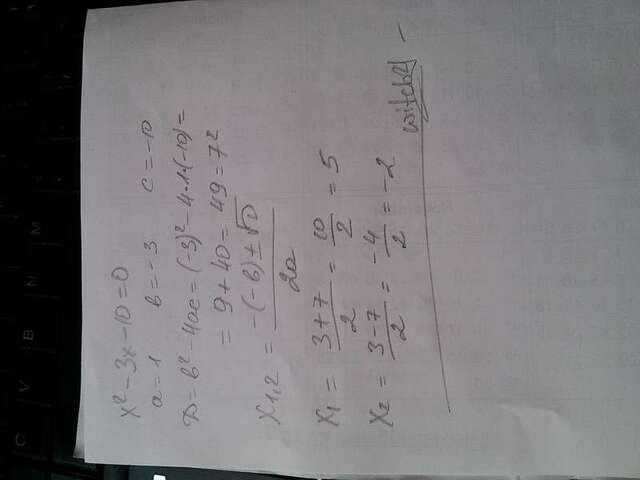 x² - 3x - 10 = 0
a = 1 b = -3 c = -10
D = b² - 4ac = (-3)² - 4·1·(-10) =
= 9 + 40 = 49 = 7²
x1,2 = -(-b) ± √D / 2a
x1 = 3 + 7 / 2 = 10 / 2 = 5
x2 = 3 - 7 / 2 = -4 / 2 = -2